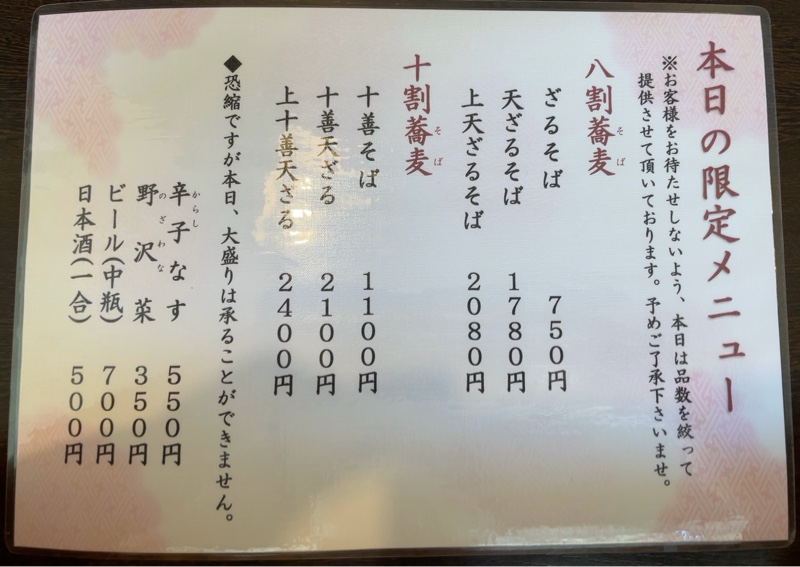 本日の限定メニュー
※お客様をお待たせしないよう、本日は品数を絞って
提供させて頂いております。予めご了承下さいませ。
八割蕎麦
そば
ざるそば 750円
天ざるそば 1780円
上天ざるそば 2080円
十割蕎麦
そば
十善そば 1100円
十善天ざる 2100円
上十善天ざる 2400円
◆恐縮ですが本日、大盛りは承ることができません。
辛子なす 550円
からし
野沢菜 350円
のざわな
ビール(中瓶) 700円
日本酒(一合) 500円